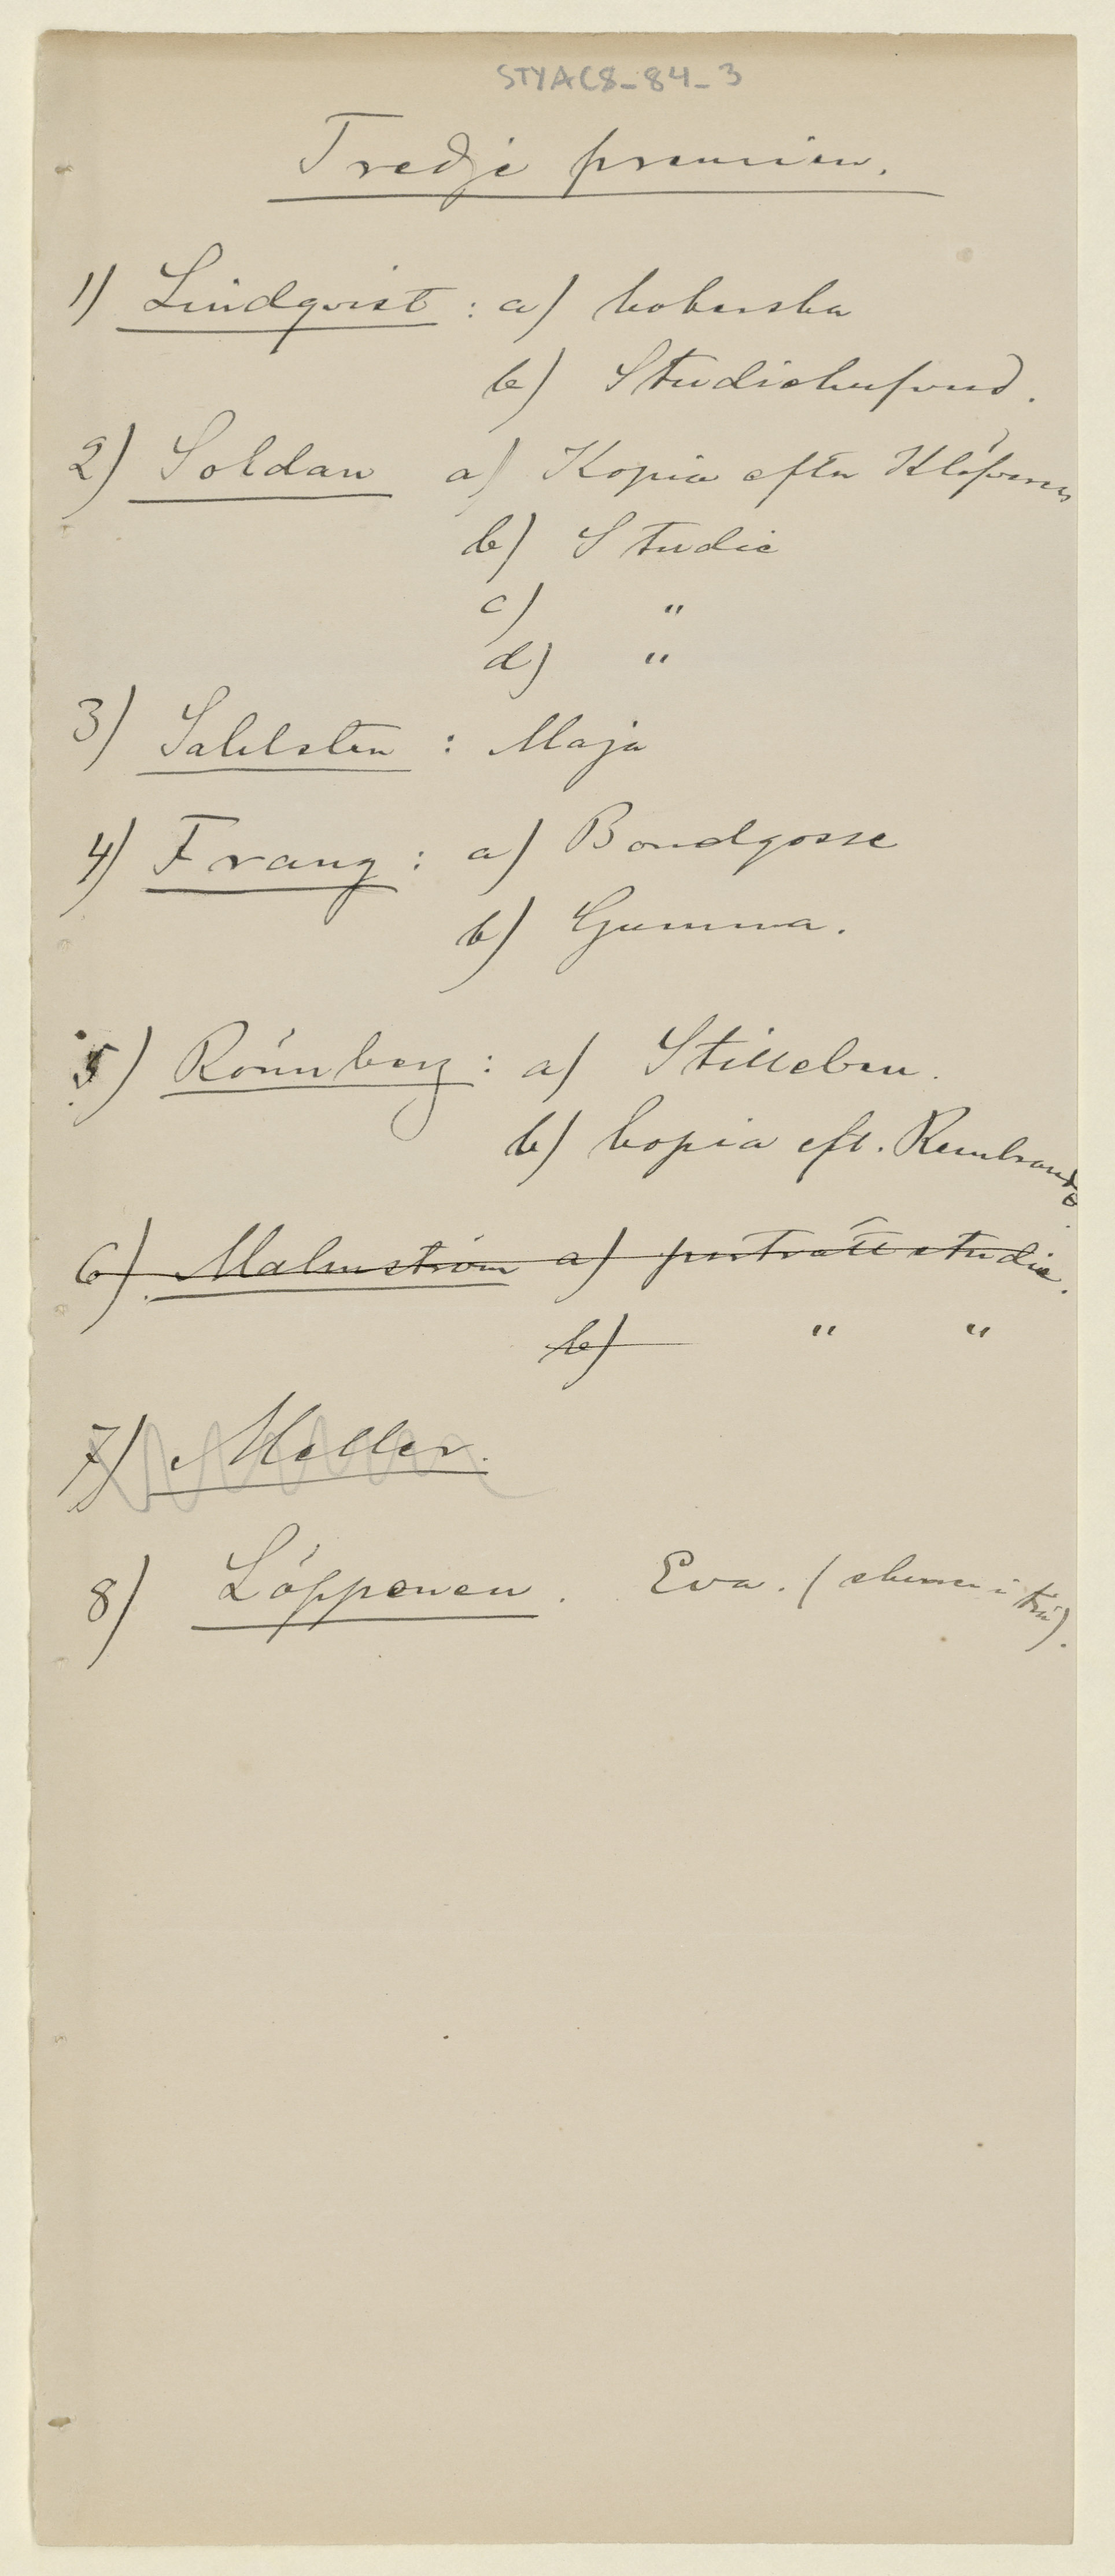 STYAC8-84-3
Tredje premien.
1) Lindqvist : a) kokerska
b) Studiehufvud.
2) Soldan a) Kopia efter
b) Studie
c) "
d) "
3) Sahlsten : Maja
4) Frang : a) Bondgosse
b) Gumma.
5) Rönnberg : a) Stilleben.
b) kopia eft. Rembrandt.
6) Malmström a) porträttstudie.
b) " "
7) Meller.
8) Löpponen. Eva. (skisser i trä).